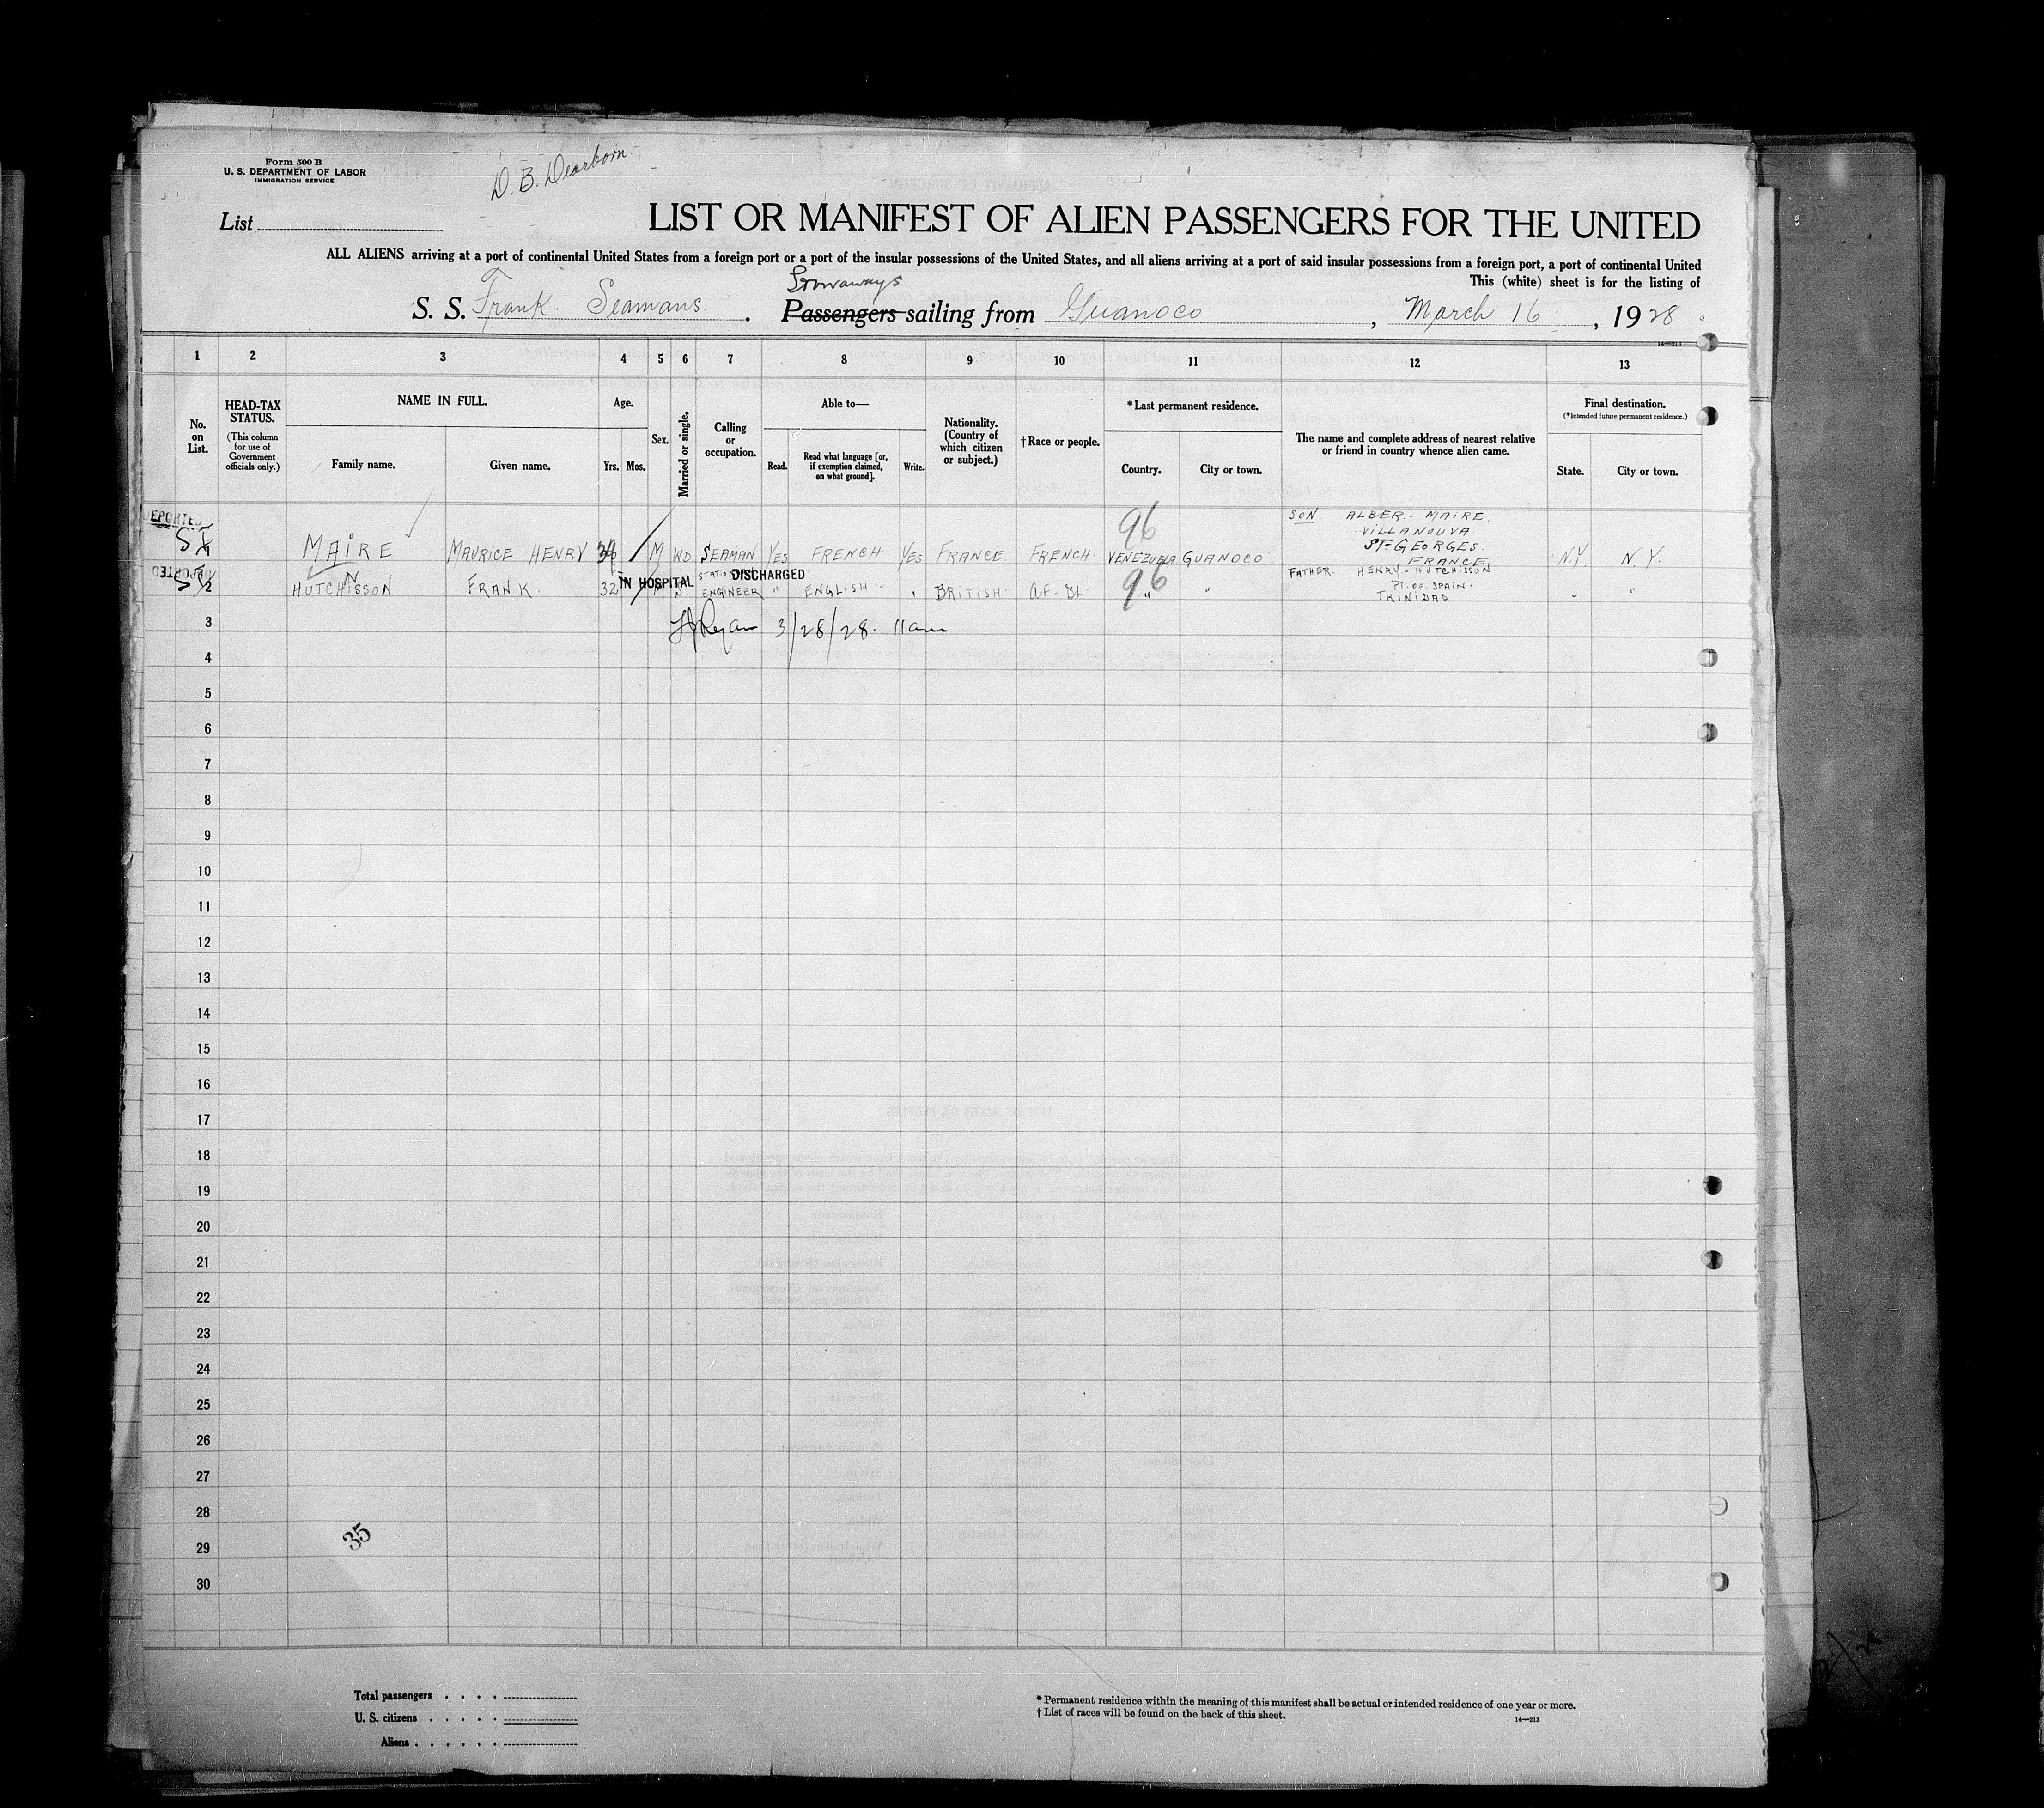 Form 500 B
U. S. DEPARTMENT OF LABOR
IMMIGRATION SERVICE
D. B. Dearborn
List
LIST OR MANIFEST OF ALIEN PASSENGERS FOR THE UNITED
ALL ALIENS arriving at a port of continental United States from a foreign port or a port of the insular possessions of the United States, and all aliens arriving at a port of said insular possessions from a foreign port, a port of continental United
This (white) sheet is for the listing of
Stowaways
S. S. Frank Seamans. Passengers sailing from Guanoco, March 16, 1928
14—213
1 2 3 4 5 6 7 8 9 10 11 12 13
No. on List.
HEAD-TAX STATUS.
(This column for use of Government officials only.)
NAME IN FULL.
Family name.
Given name.
Age.
Yrs. Mos.
Sex.
Married or single.
Calling or occupation.
Able to—
Read.
Read what language [or, if exemption claimed, on what ground].
Write.
Nationality. (Country of which citizen or subject.)
†Race or people.
*Last permanent residence.
Country.
City or town.
The name and complete address of nearest relative or friend in country whence alien came.
Final destination.
(*Intended future permanent residence.)
State.
City or town.
DEPORTED
96
SON ALBER - MAIRE
VILLANOUVA
ST-GEORGES
FRANCE
1 MAIRE MAURICE HENRY M WD. SEAMAN YES FRENCH YES FRANCE FRENCH VENEZUELA GUANOCO N.Y. N.Y.
DEPORTED
IN HOSPITAL
DISCHARGED
96
FATHER HENRY - HUTCHISSON
PT. OF SPAIN
TRINIDAD
2 HUTCHISSON FRANK 32 M S STATIONARY ENGINEER " ENGLISH " BRITISH AF. BL. " " " "
3 Ryan 3/28/28. 11am
4
5
6
7
8
9
10
11
12
13
14
15
16
17
18
19
20
21
22
23
24
25
26
27
28
29
30
35
Total passengers
U. S. citizens
Aliens
* Permanent residence within the meaning of this manifest shall be actual or intended residence of one year or more.
† List of races will be found on the back of this sheet.
14—213